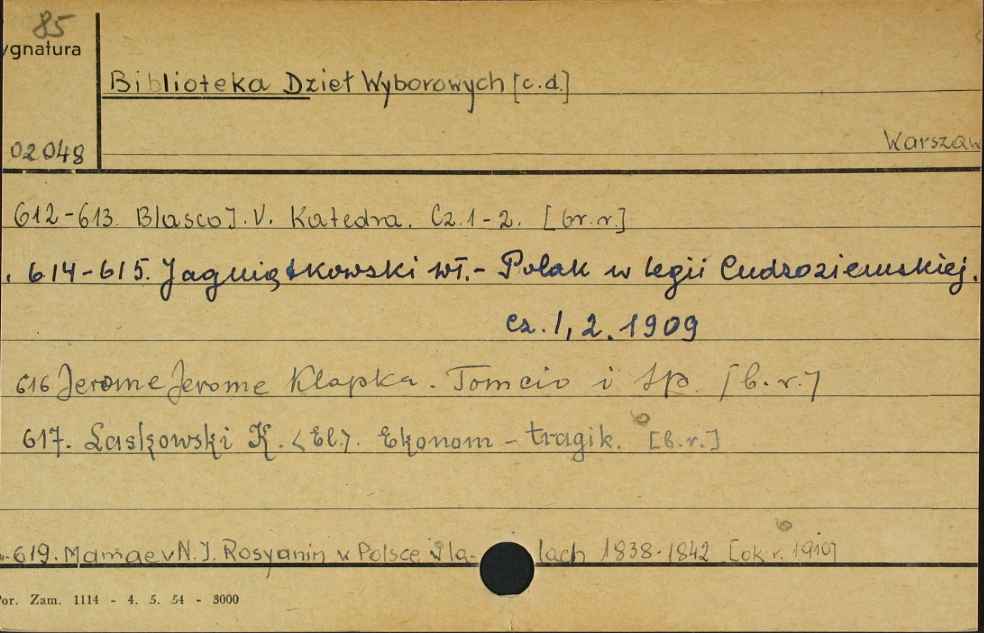 85
ygnatura
Biblioteka Dzieł Wyborowych [c.d.]
02048
Warszaw
612-613. Blasco J. V. Katedra. Cz. 1-2. [br.r.]
614-615. Jagniątkowski Wł. - Polak w legii Cudzoziemskiej.
Cz. 1, 2. 1909
616 Jerome Jerome Klapka. Tomcio i Sp. [b.r.]
617. Laskowski K. <El.>. Ekonom - tragik. [b.r.]
619. Mamaev N. J. Rosyanin w Polsce lach 1838-1842 [ok. r. 1910]
or. Zam. 1114 - 4. 5. 54 - 3000